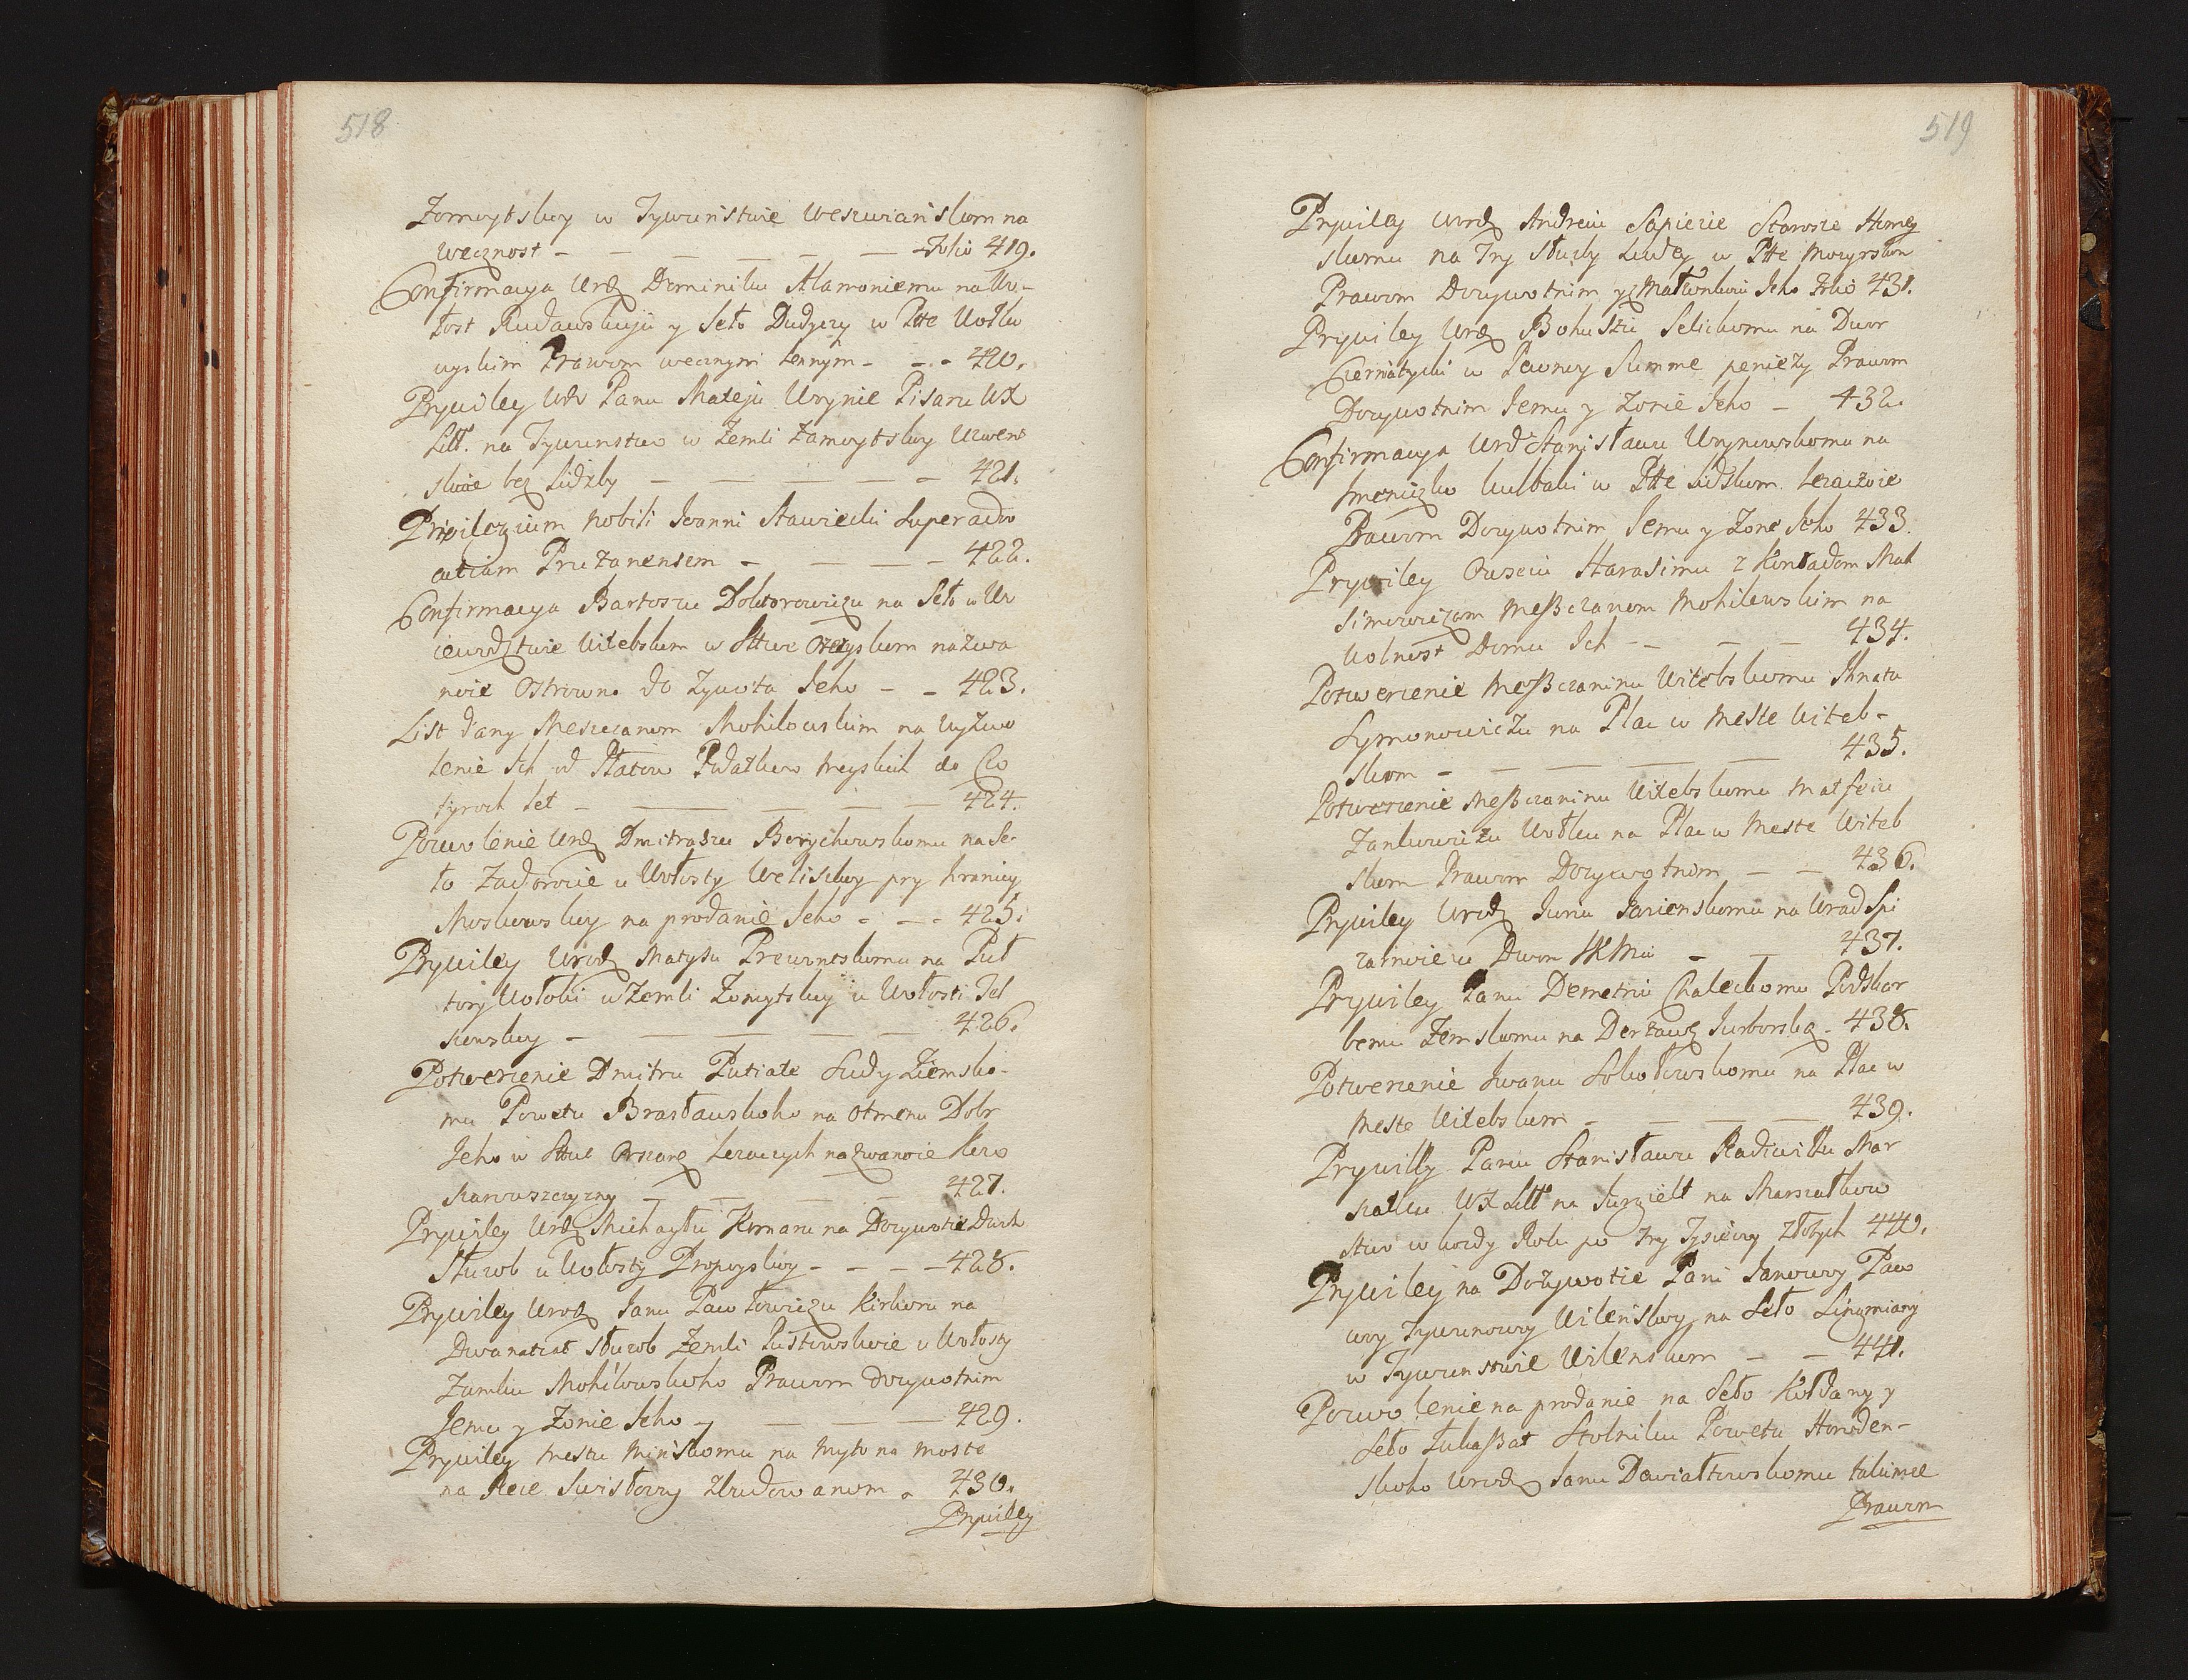 518
Żomoytskoy w Tywunstwie Weszwianskom na
wecznost - - - - - - Folio 419.
Confirmacya Urodz Dominiku Alamoniemu na Wo-
łost Rudawskuju y Seło Dudyczy w Ptte Wołko
wyskim Prawom wecznym Lennym - - - 420.
Prywiley Urodz Panu Mateju Woynie Pisaru WX
Litt. na Tywunstwo w Zemli Żamoytskoy Uzwent
skoie bez Lidzby - - - - - 421.
Privilegium Nobili Joanni Stawiecki super advo
catiam Prużanensem - - - - 422.
Confirmacya Bartoszu Doktorowiczu na Seło w Wo
iewodztwie Witebskom w Sttwe Ozeryskom nazwa
noie Ostrowno do Żywota Jeho - - 423.
List dany Mesczanom Mohilowskim na wyzwo
lenie Ich od Płatow Podatkow Meyskich do Cze
tyroch Let - - - - - 424.
Pozwolenie Urodz Dmitraszu Borychowskomu na Se
ło Zadorozie u Wołosty Weliskoy pry hranicy
Moskowskoy na prodanie Jeho - - - 425.
Prywiley Urodz Matysu Prewentskomu na Puł
tory Wołoki w Zemli Żomoytskoy u Wołosti Tel
szowskoy - - - - - 426.
Potwerzenie Dmitru Putiate Sudy Ziemsko-
mu Powetu Brasławskoho na otmenu Dobr
Jeho w Sttwe Orszans Lezaczych nazwanoie
szczyzny - - - - 427.
Prywiley Urodz Michayłu Komaru na Dozywotie Dwoch
Służob u Wołosty Propoyskoy - - - - 428.
Prywiley Urodz Janu Pawłowiczu Kirkoru na
Dwanatcat Służob Zemli Pustowskoie u Wołosty
Zamku Mohilowskoho Prawom Dozywotnim
Jemu y Żonie Jeho - - - - 429.
Prywiley Mestu Minskomu na Myto na Moste
na Rece Swisłoczy Zbudowanom - 430.
Prywiley
519
Prywiley Urodz Andreiu Sapiezie Staroste Homey
skomu na Try Służby Ludey w Ptte Mozyrskom
Prawom Dozywotnim y z Małżonkoiu Jeho Folio 431.
Prywiley Urodz Bohuszu Selickomu na Dwor
Czerniatycki w Pewnoy Summe peniezy Prawom
Dozywotnim Jemu y Żonie Jeho - 432.
Confirmacya Urodz Stanisławu Woynowskomu na
Imeniczko Kulbaki w Ptte Lidskom Lezaczoie
Prawom Dozywotnim Jemu y Żone Jeho 433.
Prywiley Owseiu Harasimu z Kondadom Mak
simowiczam Meßczanom Mohilewskim na
Wolnost Domu Ich - - - - 434.
Potwerzenie Meßczaninu Witebskomu Ihnatu
Symonowiczu na Plac w Meste Witeb-
skom - - - - - 435.
Potwerzenie Meßczaninu Witebskomu Matfeiu
Zankowiczu Wołku na Plac w Meste Witeb
skom Prawom Dozywotnim - - 436.
Prywiley Urodz Juriu Jasienskomu na Urad Spi
zarnoie u Dwom JKMci - - 437.
Prywiley Panu Demetriu Chaleckomu Podskar
bemu Zemskomu na Derzawę Jurborską - 438.
Potwerzenie Iwanu Sokołowskomu na Plac w
Meste Witebskom - - - - 439.
Prywilly Panu Stanisławu Radiwiłłu Mar
szałku WX Litt na Jurgielt na Marszałkow
stwo w kozdy Rok po Try Tysieczy Złotych 440.
Prywiley na Dozywotie Pani Janowoy Paco
woy Tywunowoy Wilenskoy na Seło Lingmiany
w Tywunstwie Wilenskom - - 441.
Pozwolenie na prodanie na Seło Kołdany y
Seło Łukaßat Stolniku Powetu Horoden-
skoho Urodz Janu Dewiałtowskomu takimze
Prawom